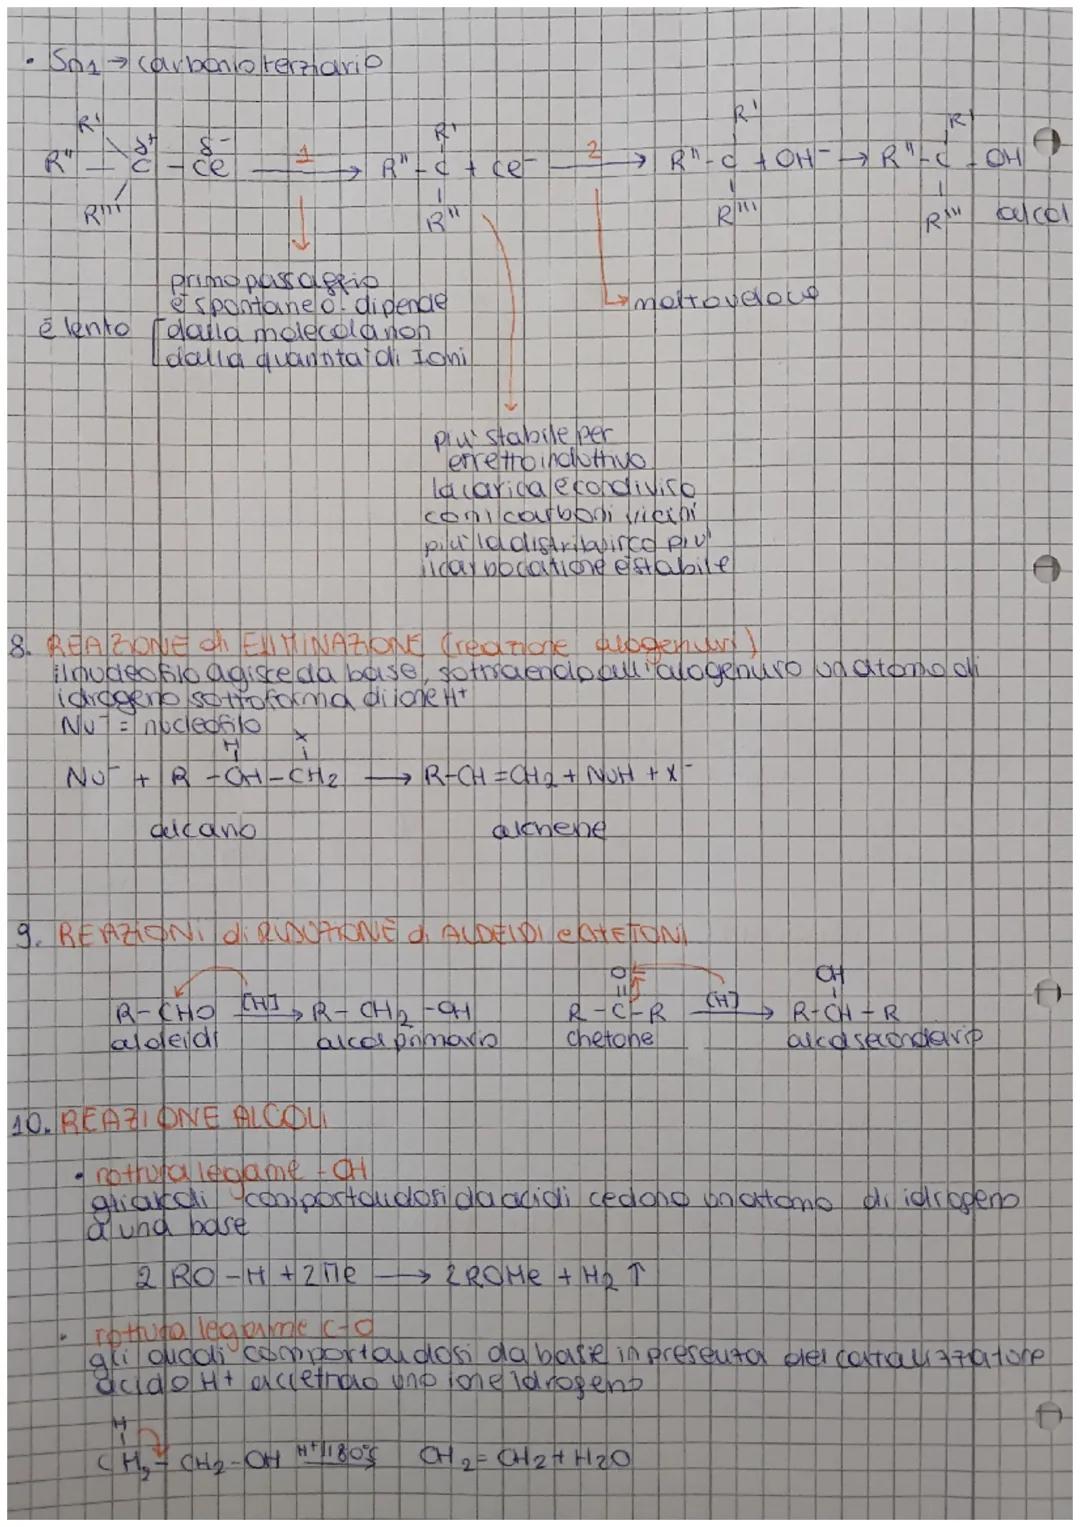 • Sn1 → carbonio terziario
R' R' R' R'
R'' — C δ+ — Cl δ- 1→ R''-C + Cl⁻ 2→ R''-C + OH⁻ → R''-C-OH
R''' R''' R''' R''' alcol
primo passaggio
è spontaneo: dipende
è lento dalla molecola non
dalla quantità di Ioni
molto veloce
piu' stabile per
effetto induttivo
la carica è condiviso
con i carboni vicini
piu' la distribuisco piu'
il carbocatione è stabile
8. REAZIONE di ELIMINAZIONE (reazione alogenuri)
il nucleofilo agisce da base, sottraendo all'alogenuro un atomo di
idrogeno sottoforma di ione H+
Nu⁻ = nucleofilo
H X
Nu⁻ + R -CH-CH2 → R-CH=CH2 + NuH + X⁻
alcano alchene
9. REAZIONI di RIDUZIONE di ALDEIDI e CHETONI
O OH
R-CHO [H]→ R-CH2-OH R-C-R [H]→ R-CH-R
aldeidi alcol primario chetone alcol secondario
10. REAZIONE ALCOLI
• rottura legame -OH
gli alcoli comportandosi da acidi cedono un atomo di idrogeno
a una base
2 RO-H + 2Me → 2ROMe + H2 ↑
• rottura legame C-O
gli alcoli comportandosi da base in presenza del catalizzatore
acido H+ accettano uno ione idrogeno
H
CH2-CH2-OH H+/180°C CH2=CH2+H2O